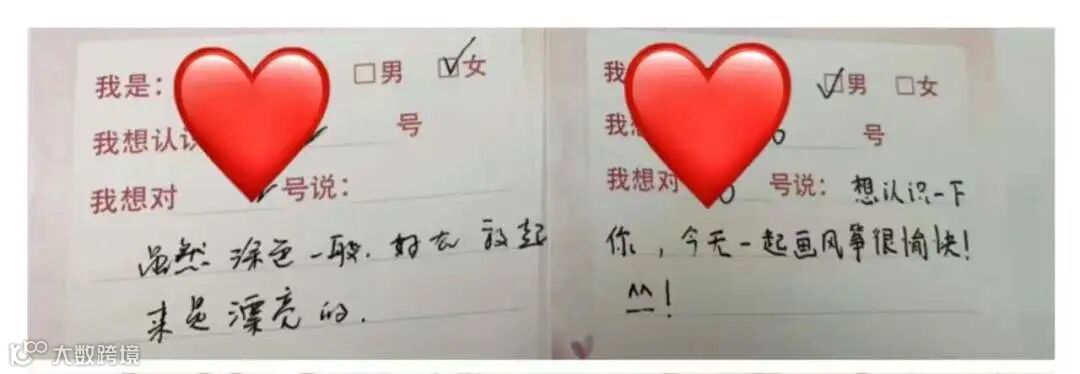 我是： □男 ☑女
我想认识 号
我想对 号说：
虽然涂色一般，好在放起
来是漂亮的.
我 ☑男 □女
我想 0 号
我想对 0 号说：想认识一下
你，今天一起画风筝很愉快！
^^！
大数跨境